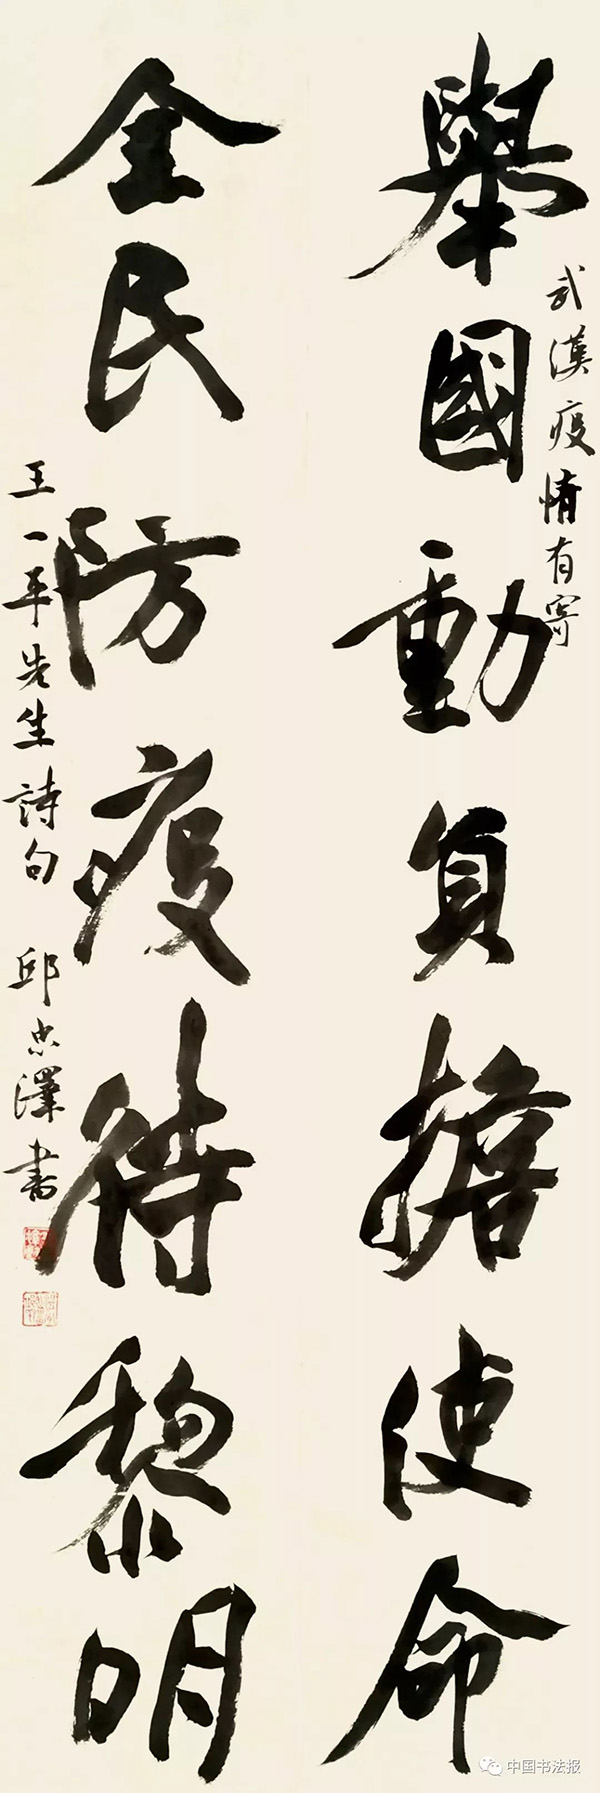 武漢疫情有寄
舉國動員擔使命
全民防疫待黎明
王一平先生詩句 邱忠澤書
中国书法报